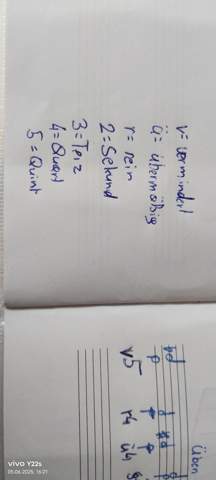 v = vermindert
ü = übermäßig
r = rein
2 = Sekund
3 = Terz
4 = Quart
5 = Quint
Üben
v5 r4 ü4
vivo Y22s
05.06.2025, 16:21